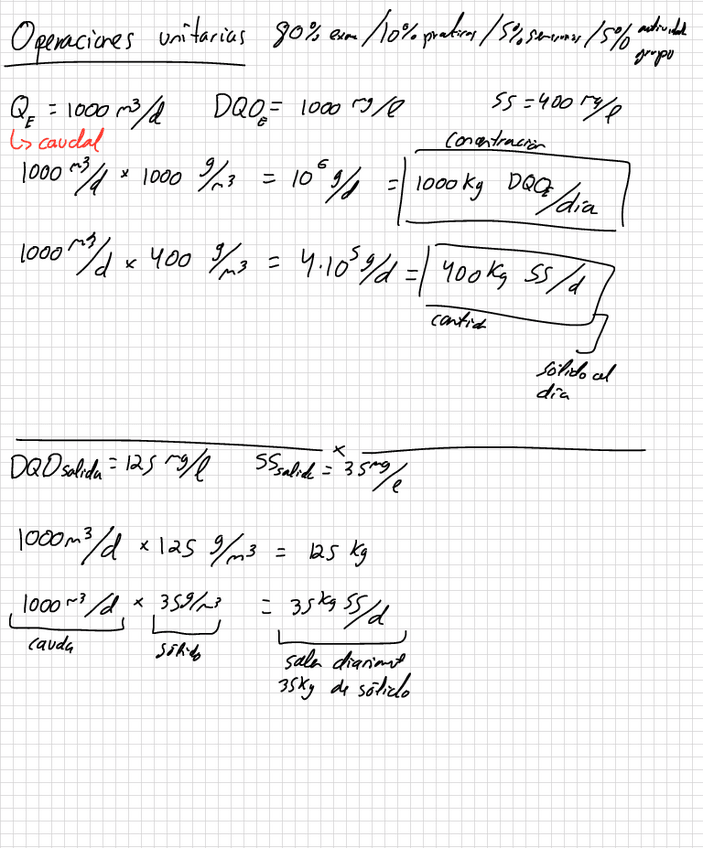 Operaciones unitarias 80% exam /10% practicas /5% seminarios /5% actividad grupo
Q_E = 1000 m³/d DQO_E = 1000 mg/l SS = 400 mg/l
↳ caudal
concentración
1000 m³/d × 1000 g/m³ = 10⁶ g/d = 1000 Kg DQO_E/día
1000 m³/d × 400 g/m³ = 4·10⁵ g/d = 400 Kg SS/d
cantid
sólido al
día
×
DQO salida = 125 mg/l SS salida = 35 mg/l
1000 m³/d × 125 g/m³ = 125 Kg
1000 m³/d × 35 g/m³ = 35 Kg SS/d
cauda sólido salen
35Kg de sólido